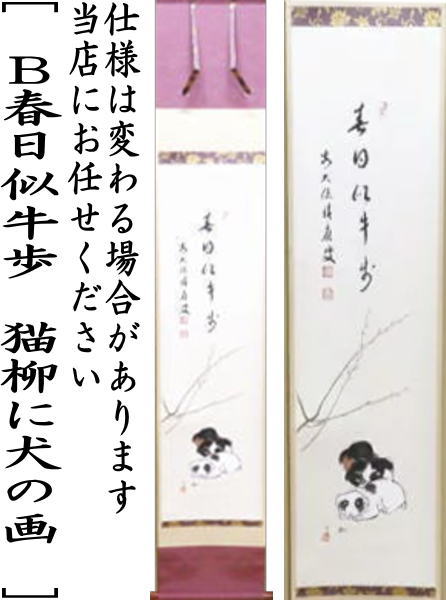 仕様は変わる場合があります
当店にお任せください
[ B春日似牛歩 猫柳に犬の画 ]
春日似牛歩
春日似牛歩